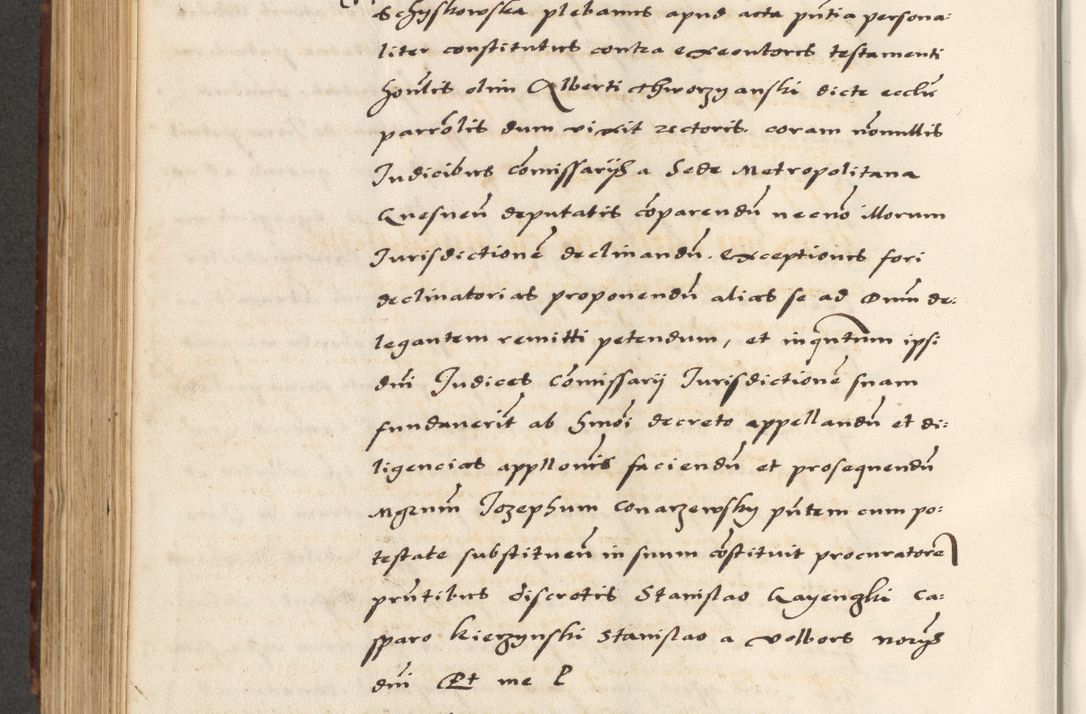 Schyskowska plebanus apud acta pñtia persona:
liter constitutus contra executores testamenti
hoñlis olim Alberti Chworzyanski dicte ecclie
parrõlis dum vixit rectoris. coram nõnullis
Judicibus cõmissarijs a Sede Metropolitana
Gnesneñ deputatis cõparendũ necnõ illorum
Jurisdictionẽ declinandũ. Exceptiones fori
declinatorias proponendũ alias se ad Dnum de:
legantem remitti petendum, et inqntum ipsi
dñi Judices Cõmissarij Jurisdictionẽ suam
fundauerĩt ab hmõi decreto appellandũ et di:
ligencias appllonis faciendũ et prosequendũ
Mgrum Jozephum Conarzewsky pñtem cum po:
testate substitueñ in suum cõstituit procuratorem
pñtibus discretis Stanislao Gayewski Ca:
sparo Kierzynski Stanislao a Volbors norijs
dñi Et me P